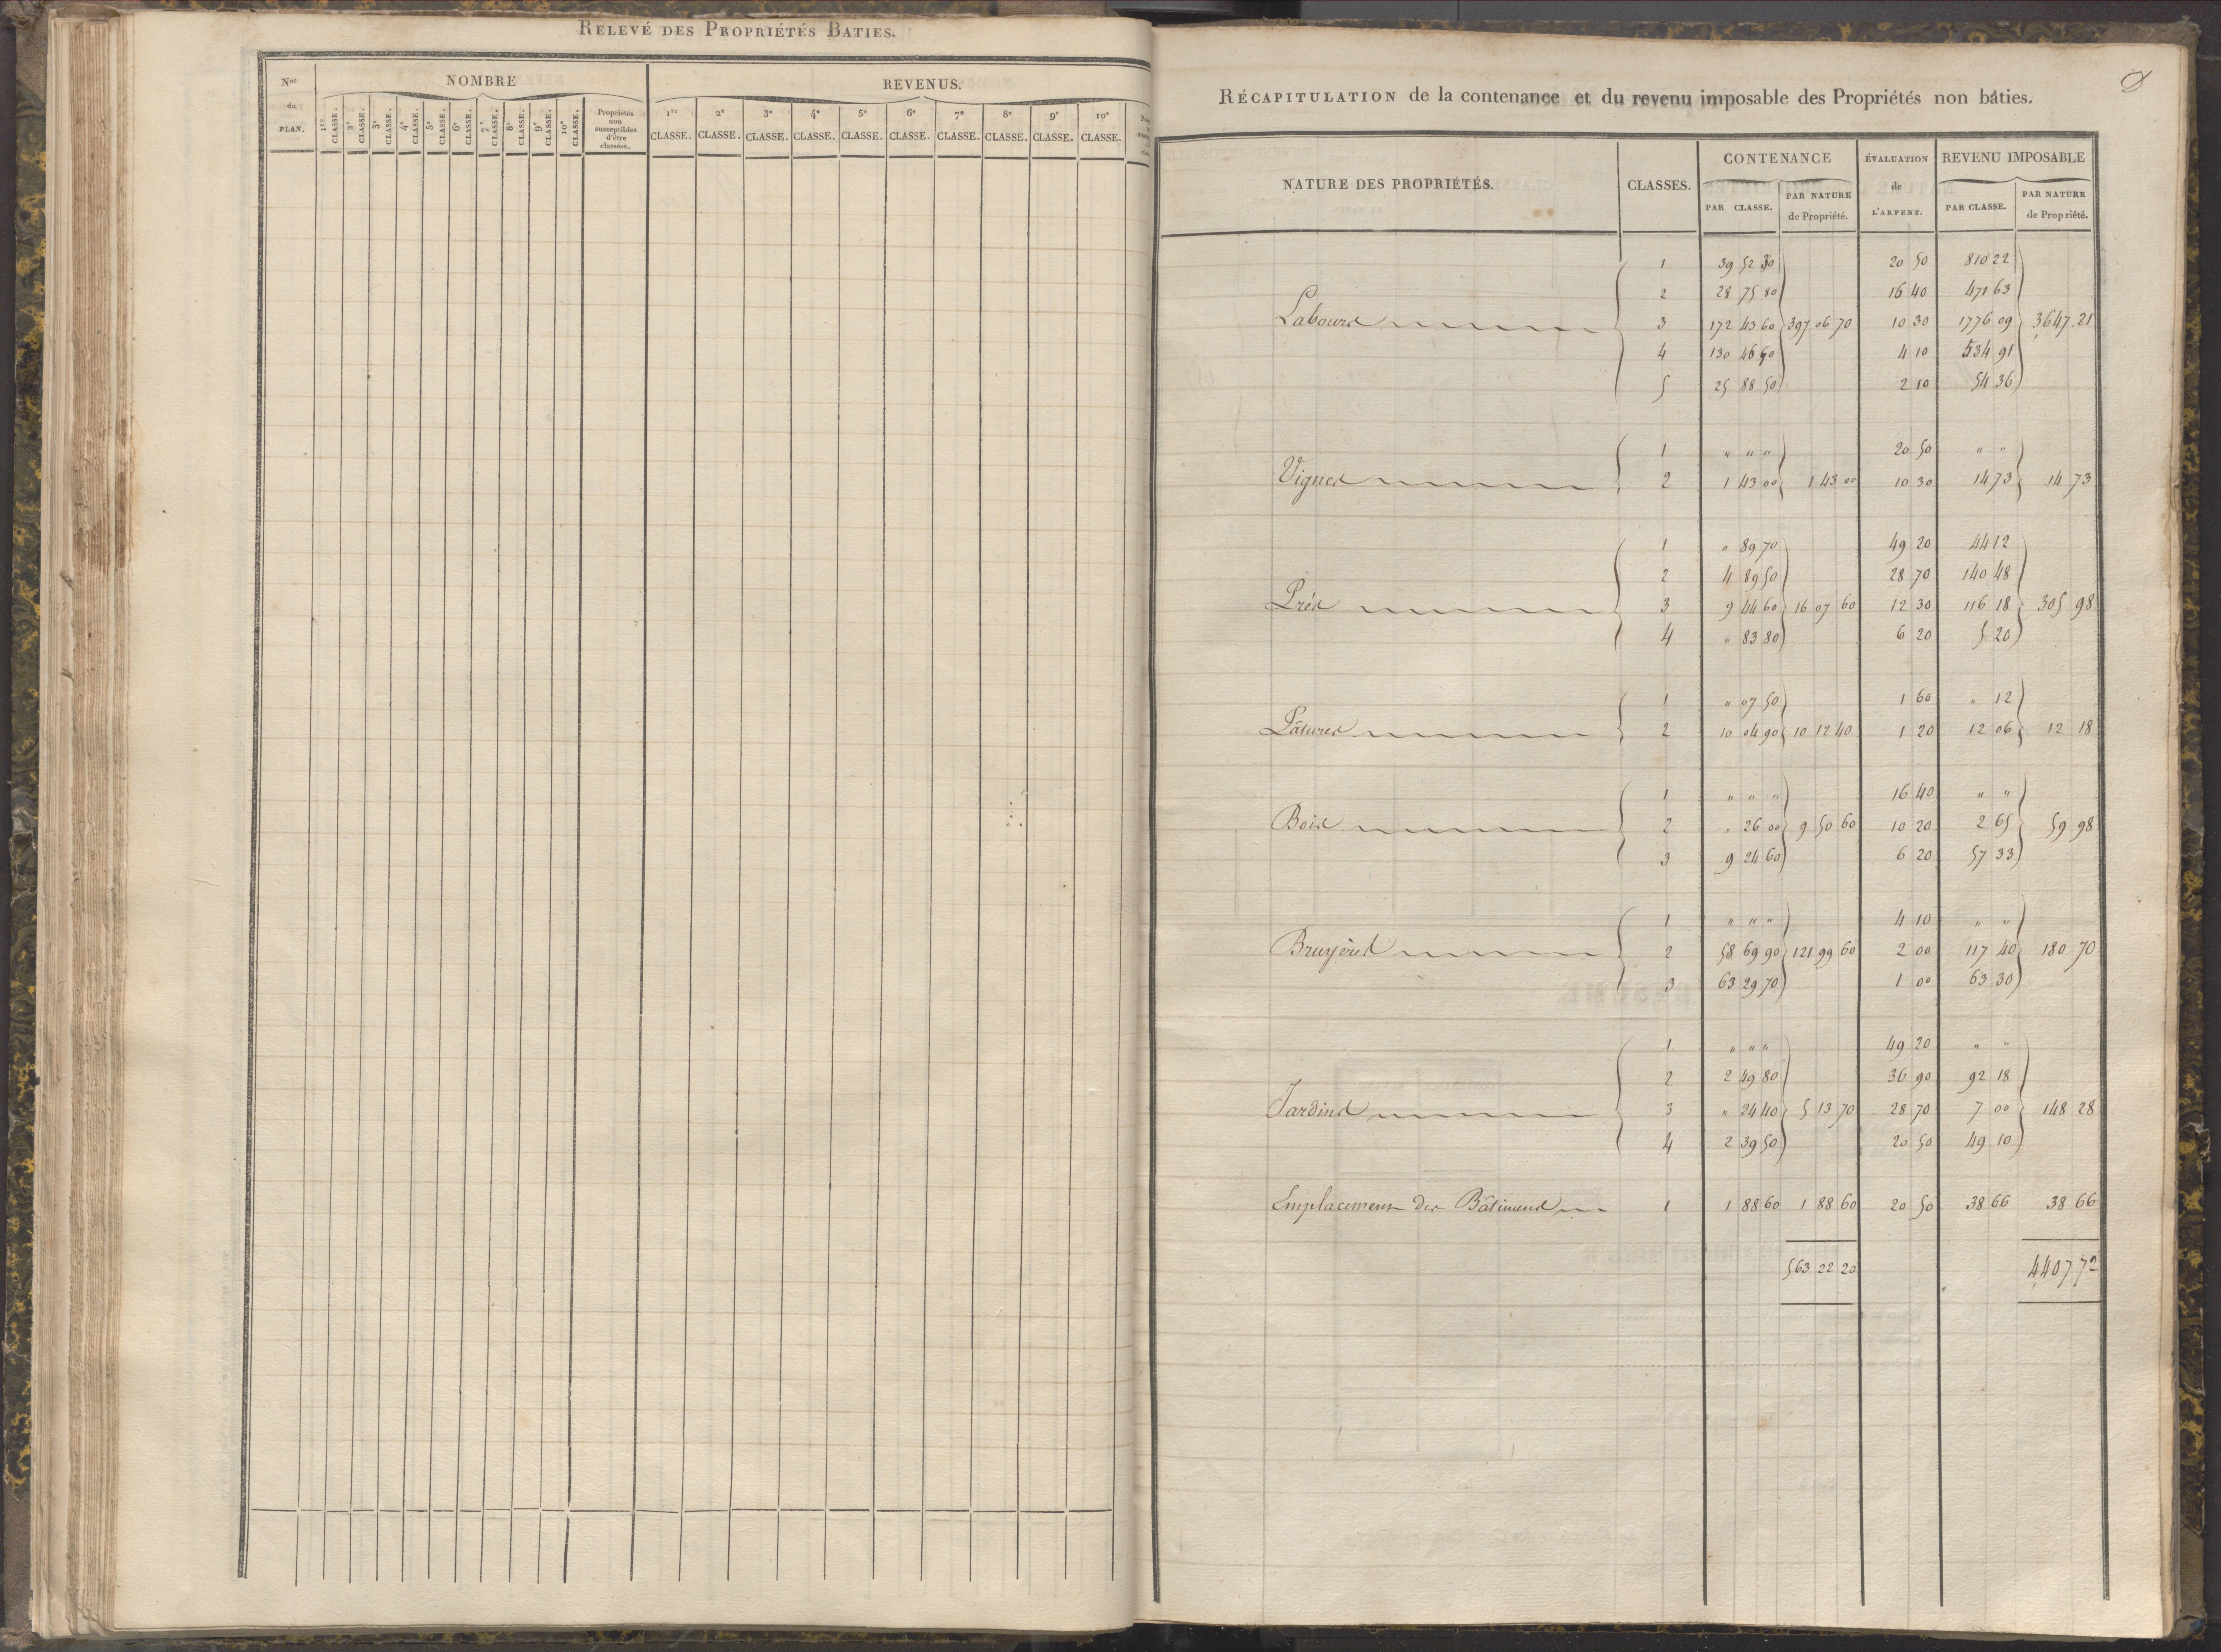 RELEVÉ DES PROPRIÉTÉS BATIES.
Nos du PLAN.
NOMBRE
REVENUS.
1re CLASSE. 2e CLASSE. 3e CLASSE. 4e CLASSE. 5e CLASSE. 6e CLASSE. 7e CLASSE. 8e CLASSE. 9e CLASSE. 10e CLASSE.
Propriétés non susceptibles d'être classées.
1re CLASSE. 2e CLASSE. 3e CLASSE. 4e CLASSE. 5e CLASSE. 6e CLASSE. 7e CLASSE. 8e CLASSE. 9e CLASSE. 10e CLASSE.
RÉCAPITULATION de la contenance et du revenu imposable des Propriétés non bâties.
NATURE DES PROPRIÉTÉS. CLASSES. CONTENANCE ÉVALUATION de L'ARPENT. REVENU IMPOSABLE
PAR CLASSE. PAR NATURE de Propriété. PAR CLASSE. PAR NATURE de Propriété.
1 39 52 30 20 50 810 22
2 28 75 80 16 40 471 63
Labours 3 172 43 60 397 06 70 10 30 1776 09 3647.21
4 130 46 50 4 10 534 91
5 25 88 50 2 10 54 36
1 " " " 20 50 " "
Vignes 2 1 43 00 1 43 00 10 30 14 73 14 73
1 " 89 70 49 20 44 12
2 4 89 50 28 70 140 48
Prés 3 9 44 60 16 07 60 12 30 116 18 305 98
4 " 83 80 6 20 5 20
1 " 07 50 1 60 " 12
Pâtures 2 10 04 90 10 12 40 1 20 12 06 12 18
1 " " " 16 40 " "
Bois 2 " 26 00 9 50 60 10 20 2 65 59 98
3 9 24 60 6 20 57 33
1 " " " 4 10 " "
Bruyères 2 58 69 90 121 99 60 2 00 117 40 180 70
3 63 29 70 1 00 63 30
1 " " " 49 20 " "
2 2 49 80 36 90 92 18
Jardins 3 " 24 40 5 13 70 28 70 7 00 148 28
4 2 39 50 20 50 49 10
Emplacement des Bâtiments 1 1 88 60 1 88 60 20 50 38 66 38 66
563 22 20 4407 72